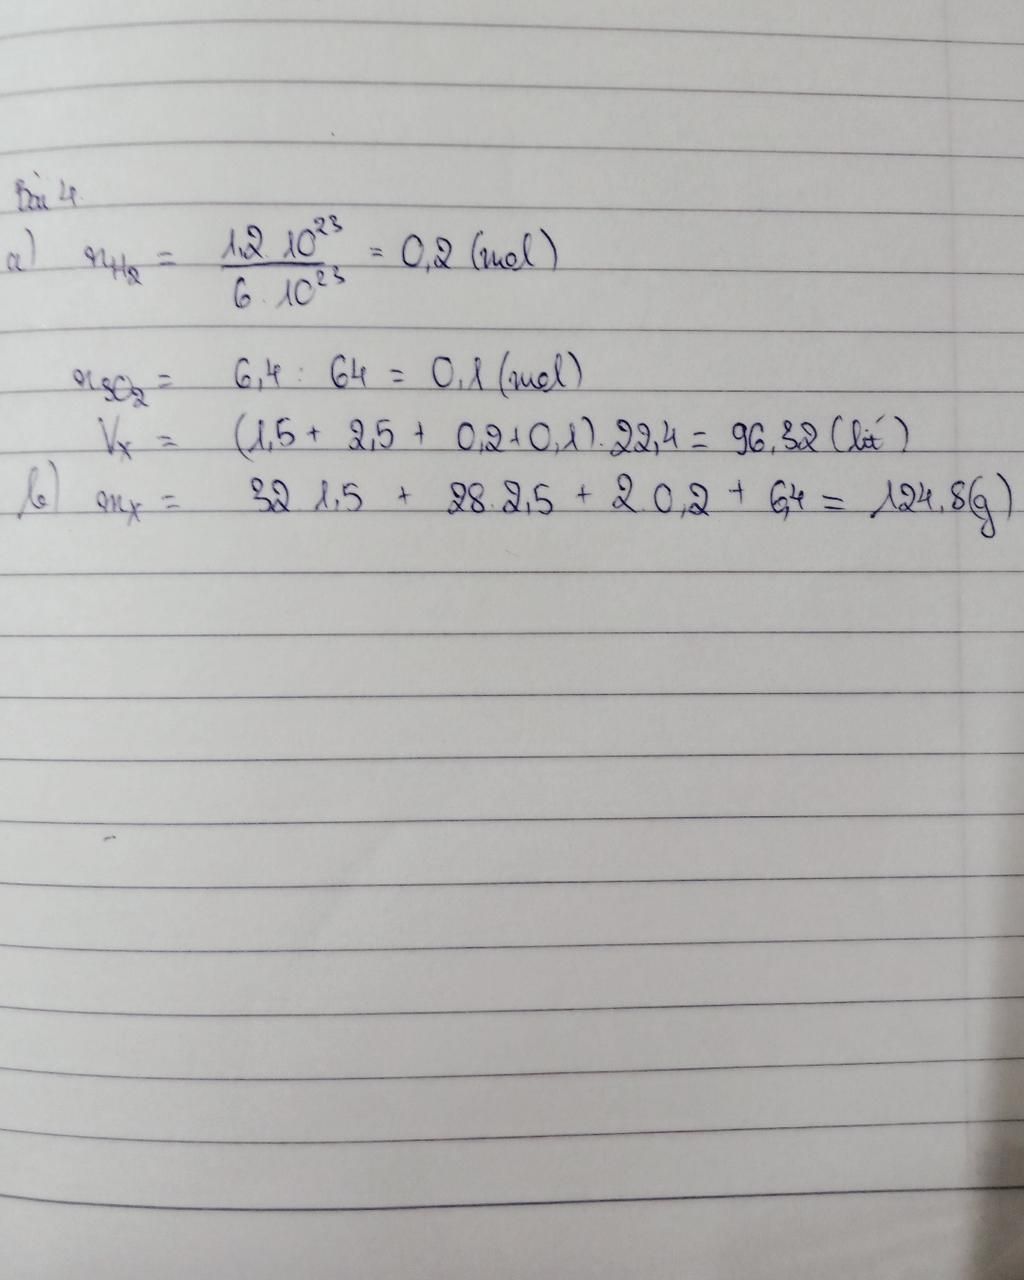 Bài 4
a) nH₂ = 1,2 . 10²³ / 6 . 10²³ = 0,2 (mol)
nSO₂ = 6,4 : 64 = 0,1 (mol)
Vx = (1,5 + 2,5 + 0,2 + 0,1) . 22,4 = 96,32 (lít)
b) mx = 32 . 1,5 + 28 . 2,5 + 2 . 0,2 + 6,4 = 124,8 (g)